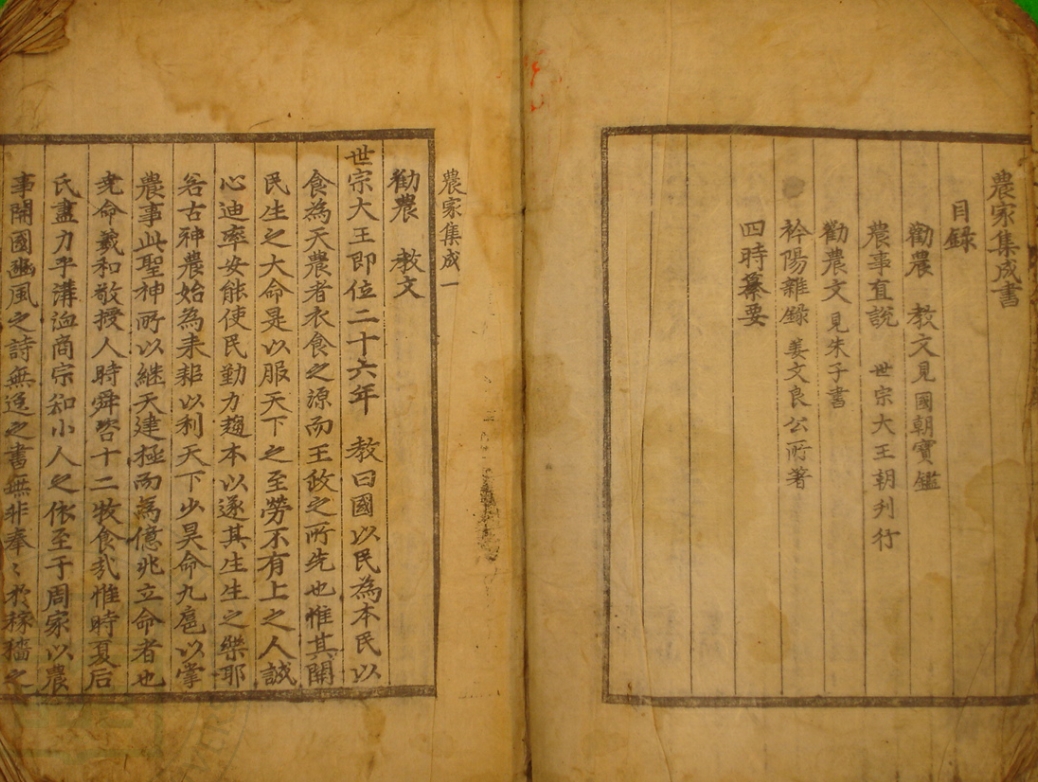 農家集成書
目錄
勸農 敎文 見國朝寶鑑
農事直說 世宗大王朝刋行
勸農文 見朱子書
衿陽雜錄 姜文良公所著
四時纂要
農家集成一
勸農 敎文
世宗大王即位二十六年 敎曰國以民為本民以
食為天農者衣食之源而王政之所先也惟其關
民生之大命是以服天下之至勞不有上之人誠
心迪率安能使民勤力趨本以遂其生生之樂耶
昔神農始為耒耜以利天下少昊命九扈以掌
農事此聖神所以継天建極而為億兆立命者也
堯命羲和敬授人時舜咨十二牧食㢤惟時夏后
氏盡力乎溝洫商宗知小人之依至于周家以農
事開國豳風之詩無逸之書無非奉〻於稼穡之